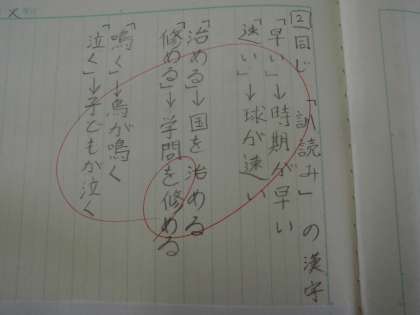 2 同じ「訓読み」の漢字
「早い」→時期が早い
「速い」→球が速い
「治める」→国を治める
「修める」→学問を修める
「鳴く」→鳥が鳴く
「泣く」→子どもが泣く